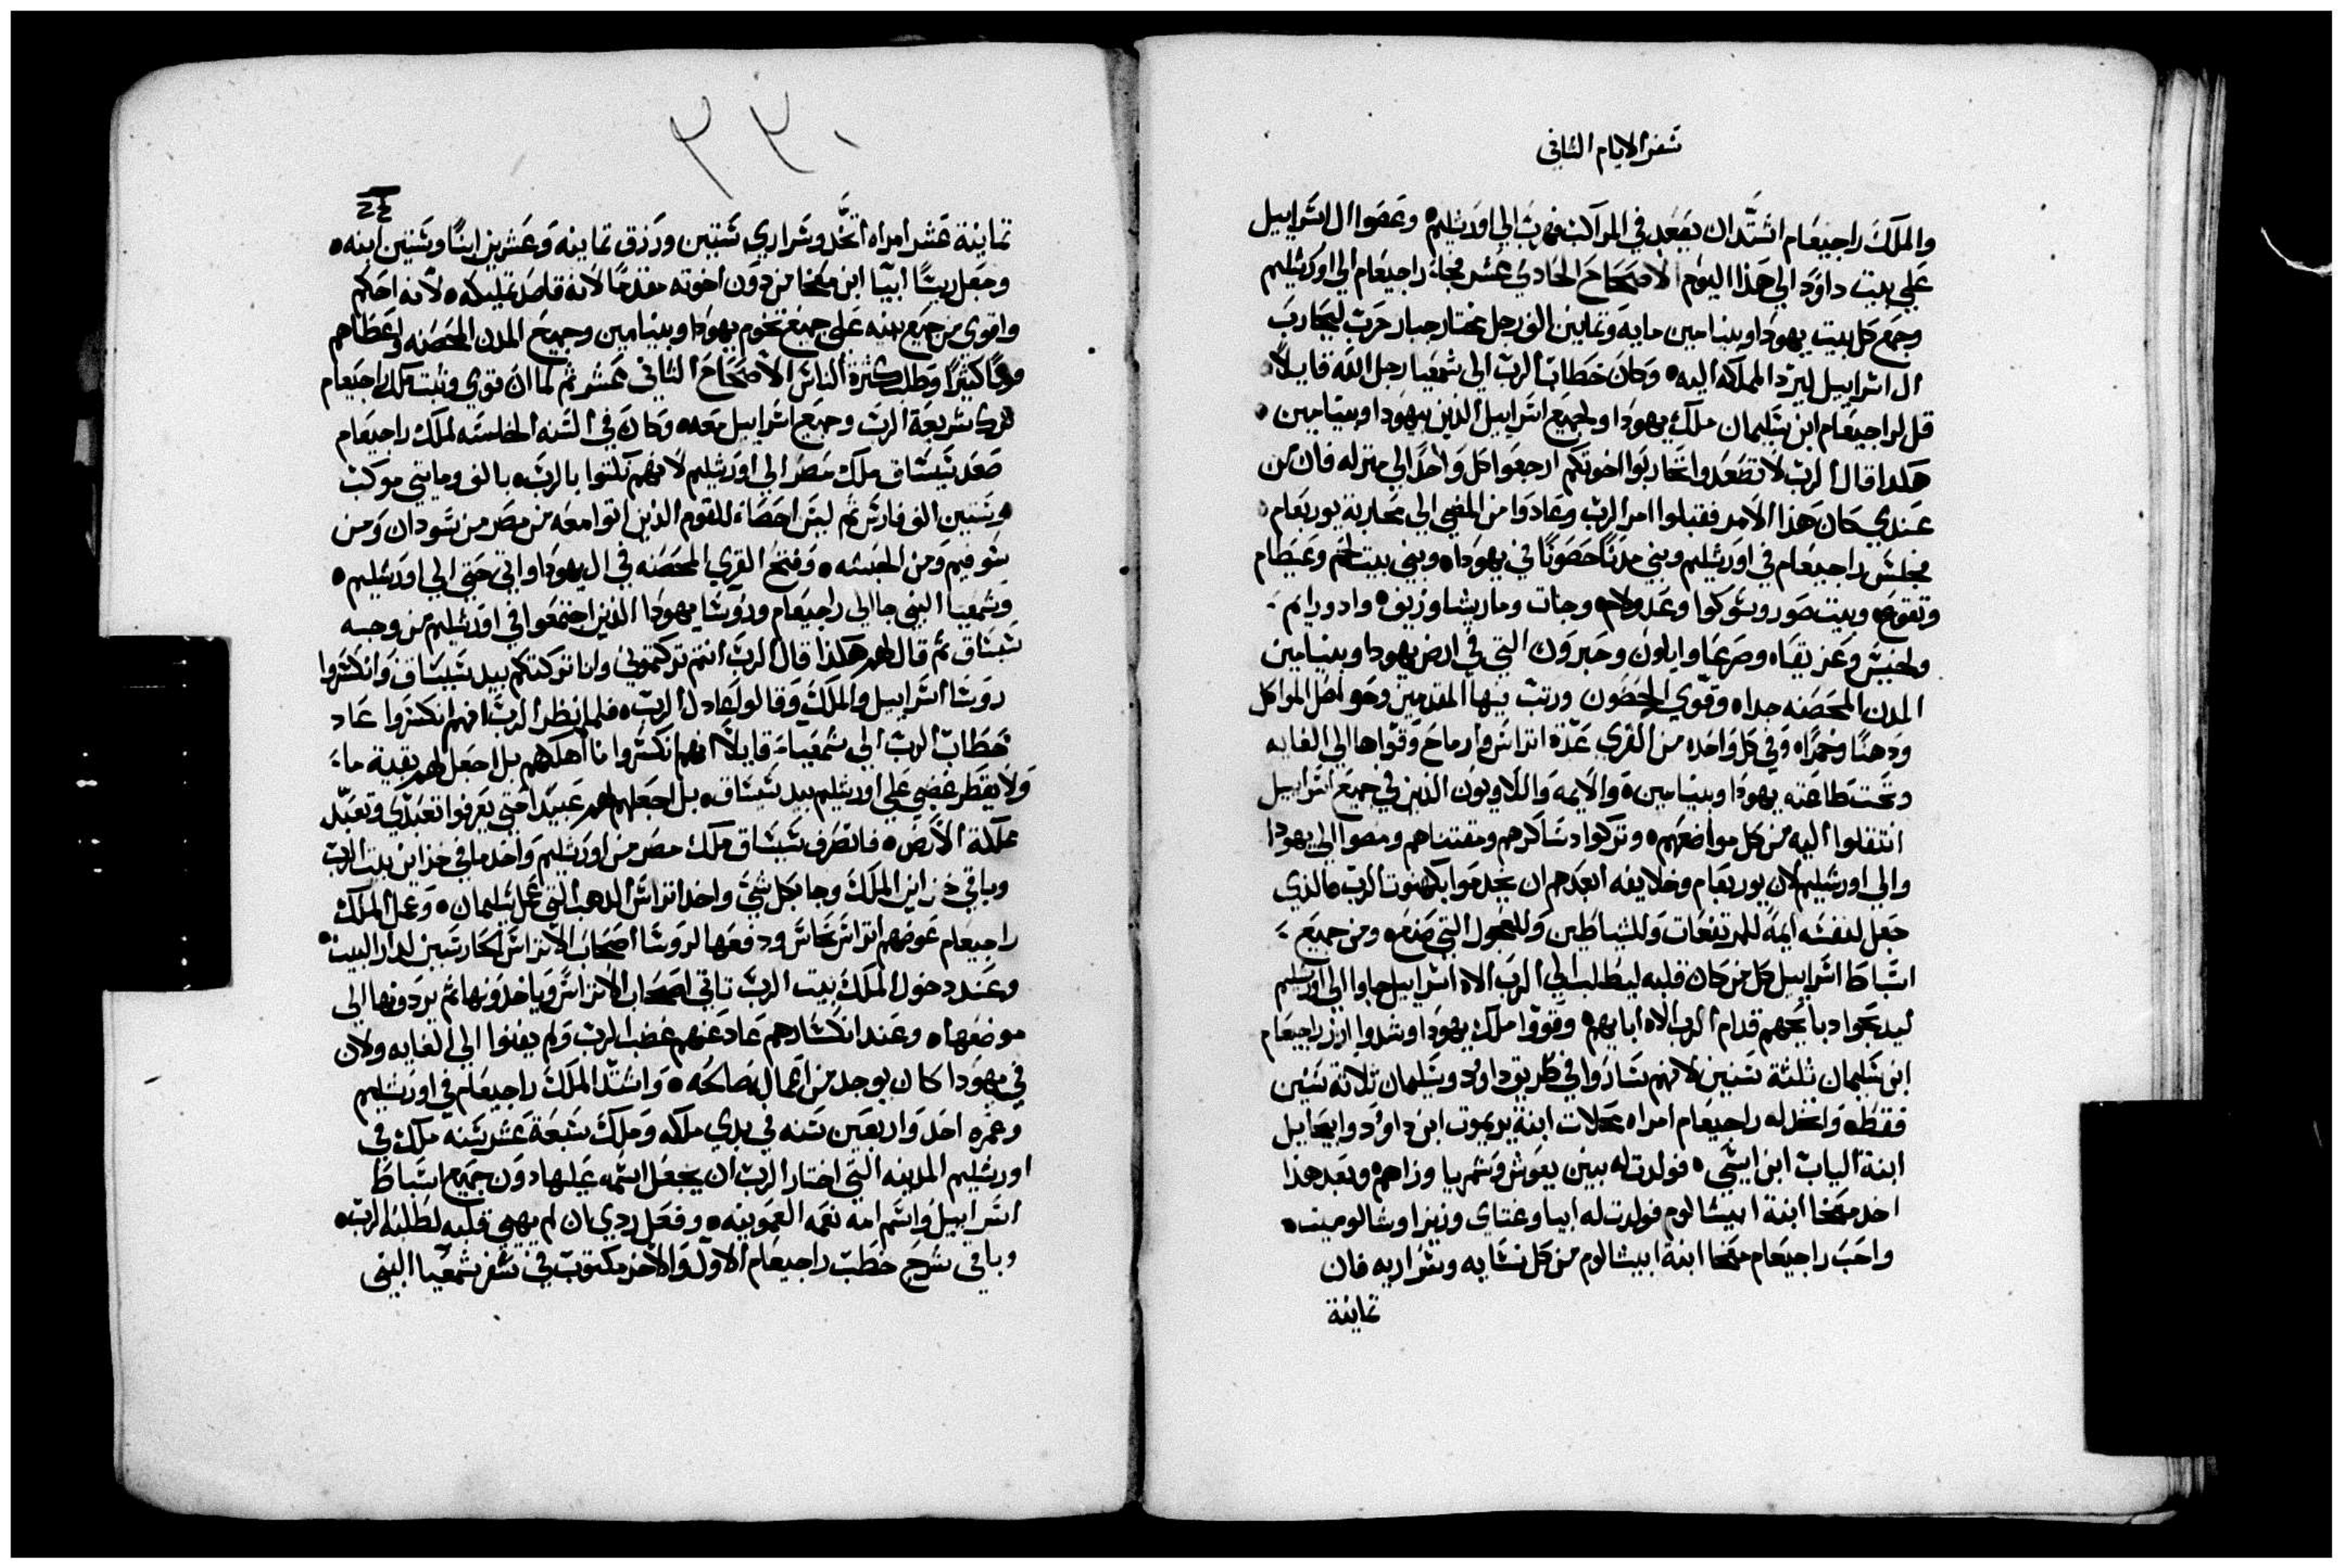 سفر الايام الثاني
والملك راجيعام اشتد ان يقعد في المراكب فهرب الي اورشليم وعصوا ال اسراييل
علي بيت داود الي هذا اليوم الاصحاح الحادي عشر فجاء راجيعام الي اورشليم
وجمع كل بيت يهودا وبنيامين مايه وثمانين الف رجل مختار جبار حرب ليحارب
ال اسراييل ليرد المملكه اليه وكان خطاب الرب الي شمعيا رجل الله قايلا
قل لراجيعام ابن سليمان ملك يهودا ولجميع اسراييل الذين بيهودا وبنيامين
هكدا قال الرب لا تصعدوا تحاربوا اخوتكم ارجعوا كل واحد الي منزله فان من
عندي كان هذا الامر فقبلوا امر الرب وعادوا من المضي الي محاربة يوربعام
فجلس راجيعام في اورشليم وبني مدنا حصونا في يهودا وبني بيت لحم وعيطام
وتقوع وبيت صور وسوكوا وعدولام وجات وماريشا وزيف وادورايم
ولخيش وعزيقاه وصرعا وايلون وحبرون التي في ارض يهودا وبنيامين
المدن المحصنه جدا وقوي الحصون ورتب بها المقدمين وحواصل المواكل
ودهنا وخمرا وفي كل واحده من القري عدة اتراس وارماح وقواها الي الغايه
وتحت طاعته يهودا وبنيامين والايمه واللاويون الذين في جميع اسراييل
انتقلوا اليه من كل مواضعهم وتركوا دساكرهم ومقتناهم ومضوا الي يهودا
والي اورشليم لان يوربعام وخلايفه ابعدهم ان يخدموا بكهنوت الرب كالذي
جعل لنفسه ايمة للمرتفعات وللشياطين وللعجول التي صنع ومن جميع
اسباط اسراييل كل من كان قلبه ليطلب الي الرب الاه اسراييل جاوا الي اورشليم
ليدبحوا دبايحهم قدام الرب الاه ابايهم وقووا ملك يهودا وشدوا ازر راجيعام
ابن سليمان ثلثة سنين لانهم ساروا في طريق داود وسليمان ثلاثة سنين
فقط واتخد له راجيعام امراه محلات ابنة يريموت ابن داود وابيحايل
ابنة الياب ابن ايسي فولدت له بنين يعوش وشمريا وزاهم وبعد هذا
اخد معخا ابنة ابيشالوم فولدت له ابيا وعتاي وزيزا وشالوميت
واحب راجيعام معخا ابنة ابيشالوم من كل نسايه وسراريه فان
ثمانية
٣٣٠
٢٤
ثمانية عشر امراه اتخد وسراري ستين ورزق ثمانيه وعشرين ابنا وستين ابنه
وجعل ريسا ابيا ابن معخا من دون اخوته مقدما لانه قاصد تمليكه لانه احكم
واقوي من جميع بنيه علي جميع تخوم يهودا وبنيامين وجميع المدن المحصنه واعطاهم
كثيرا وطلب كثرة الناس الاصحاح الثاني عشر ثم لما ان قوي وثبت ملك راجيعام
ترك شريعة الرب وجميع اسراييل معه وكان في السنه الخامسه لملك راجيعام
صعد شيشاق ملك مصر الي اورشليم لانهم نكثوا بالرب بالف ومايتي موكب
وستين الف فارس ثم ليس احصاء للقوم الذين اتوا معه من مصر من سودان ومن
سوفيم ومن الحبشه وفتح القري المحصنه في ال يهودا واتي حتي الي اورشليم
وشمعيا النبي جا الي راجيعام وروسا يهودا الذين اجتمعوا في اورشليم من وجه
شيشاق ثم قال لهم هكذا قال الرب انتم تركتموني وانا تركتكم بيد شيشاق وانكسروا
روسا اسراييل والملك وقالوا عادل الرب فلما نظر الرب انهم انكسروا عاد
خطاب الرب الي شمعيا قايلا انهم انكسروا ما اهلكهم بل اجعل لهم بقية ماء
ولا يقطر غضبي علي اورشليم بيد شيشاق بل اجعلهم له عبيدا حتي يعرفوا تعبدي وتعبد
مملكة الارض فانصرف شيشاق ملك مصر من اورشليم واخد ما في خزاين بيت الرب
وباقي خزاين الملك وجا بكل شي واخد اتراس الدهب التي عمل سليمان وعمل الملك
راجيعام عوضهم اتراس نحاس ودفعها لروسا اصحاب الاتراس الحارسين لدار البيت
وعند دخول الملك بيت الرب تاتي اصحاب الاتراس وياخدونها ثم يردونها الي
موضعها وعند انكسارهم عاد عنهم غضب الرب ولم يفنوا الي الغايه ولان
في يهودا كان يوجد من اعمال صالحه واشتد الملك راجيعام في اورشليم
وعمره احد واربعين سنه في بدي ملكه وملك سبعة عشر سنه ملك في
اورشليم المدينه التي اختار الرب ان يجعل اسمه عليها دون جميع اسباط
اسراييل واسم امه نعمه العمونيه وفعل ردي ان لم يهيي قلبه لطلب الرب
وباقي شرح خطب راجيعام الاول والاخر مكتوب في سفر شمعيا النبي